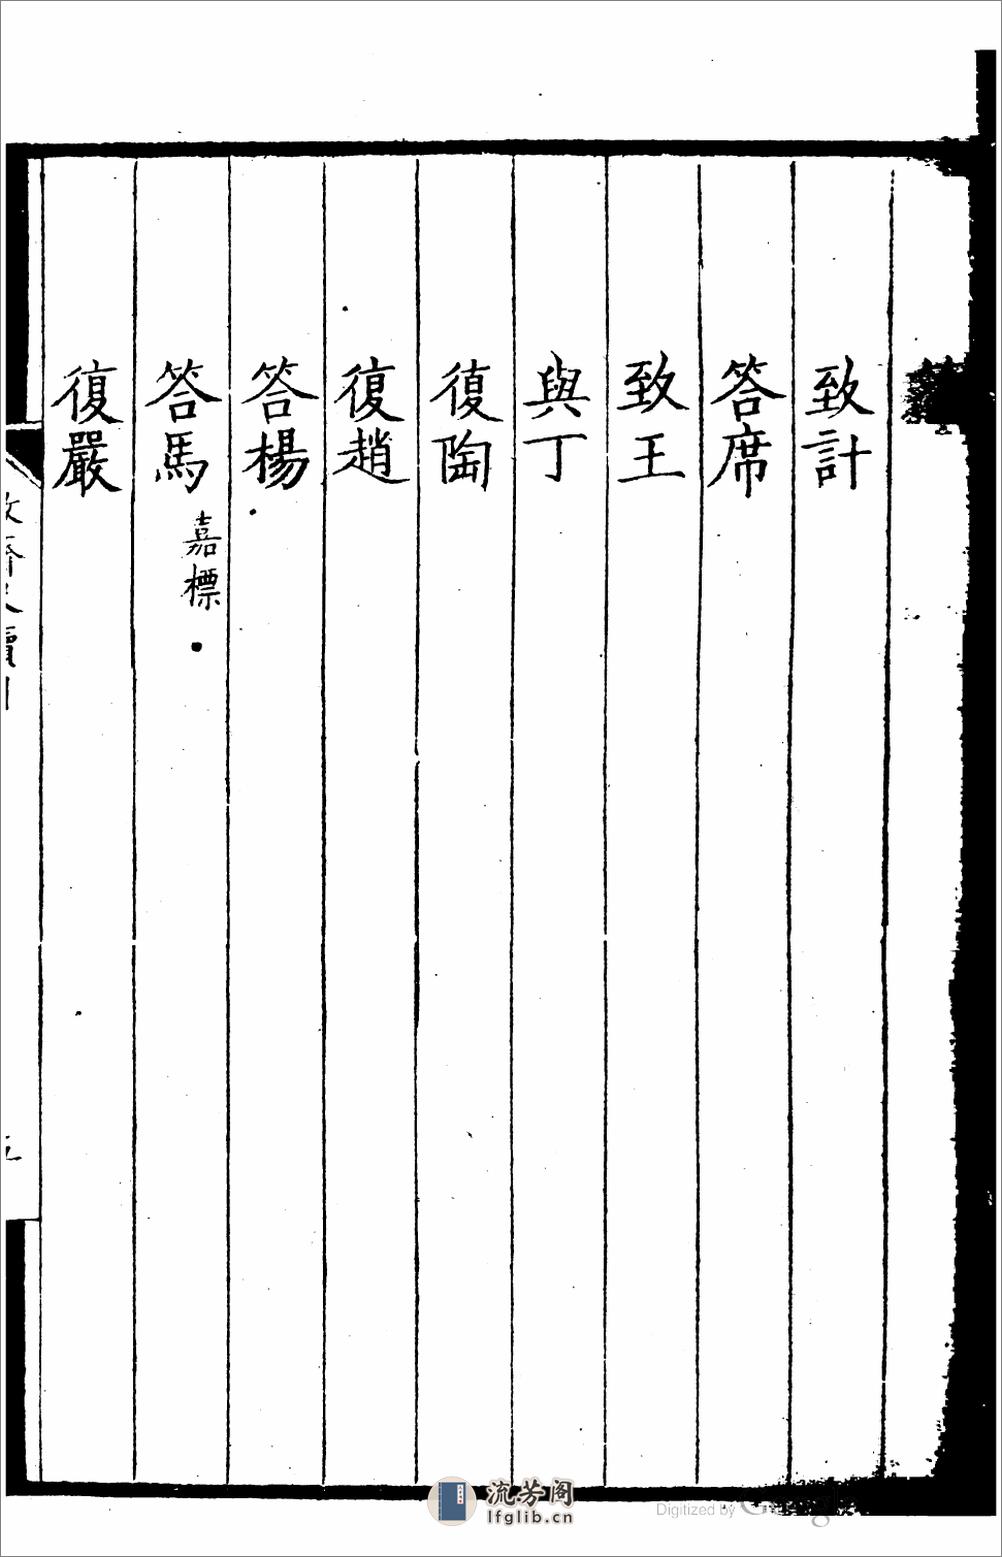 致計
答席
致王
與丁
復陶
復趙
答楊
答馬 嘉標
復嚴
流芳阁
lfglib.cn
Digitized by